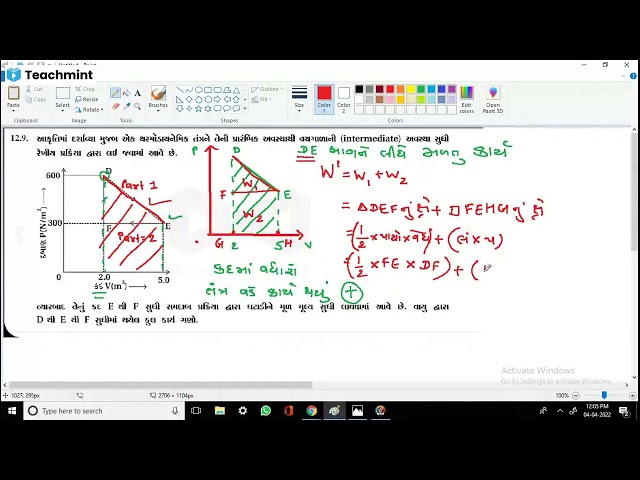 Teachmint
Paste
Select
Crop
Resize
Rotate
Brushes
Outline
Fill
Size
Color 1
Color 2
Edit colors
Open Paint 3D
Clipboard
Image
Tools
Shapes
Colors
12.9. આકૃતિમાં દર્શાવ્યા મુજબ એક થરમોડાયનેમિક તંત્રને તેની પ્રારંભિક અવસ્થાથી વચગાળાની (intermediate) અવસ્થા સુધી
રેખીય પ્રક્રિયા દ્વારા લઈ જવામાં આવે છે.
600
300
દબાણ P(N/m²)
D
E
F
Part 1
Part-2
2.0
5.0
કદ V(m³)
P
D
F
E
W₁
W₂
G 2 5 H V
કદમાં વધારો
તંત્ર વડે કાર્ય થયું +
DE ભાગને લીધે મળતુ કાર્ય
W' = W₁ + W₂
= △DEFનું ક્ષે + □FEHGનું ક્ષે
= (½ × પાયો × વેધ) + (લં × પ)
= (½ × FE × DF) + (
ત્યારબાદ તેનું કદ E થી F સુધી સમદાબ પ્રક્રિયા દ્વારા ઘટાડીને મૂળ મૂલ્ય સુધી લાવવામાં આવે છે. વાયુ દ્વારા
D થી E થી F સુધીમાં થયેલ કુલ કાર્ય ગણો.
Activate Windows
Go to Settings to activate Windows.
1027, 295px
2706 × 1104px
100%
Type here to search
12:05 PM
04-04-2022